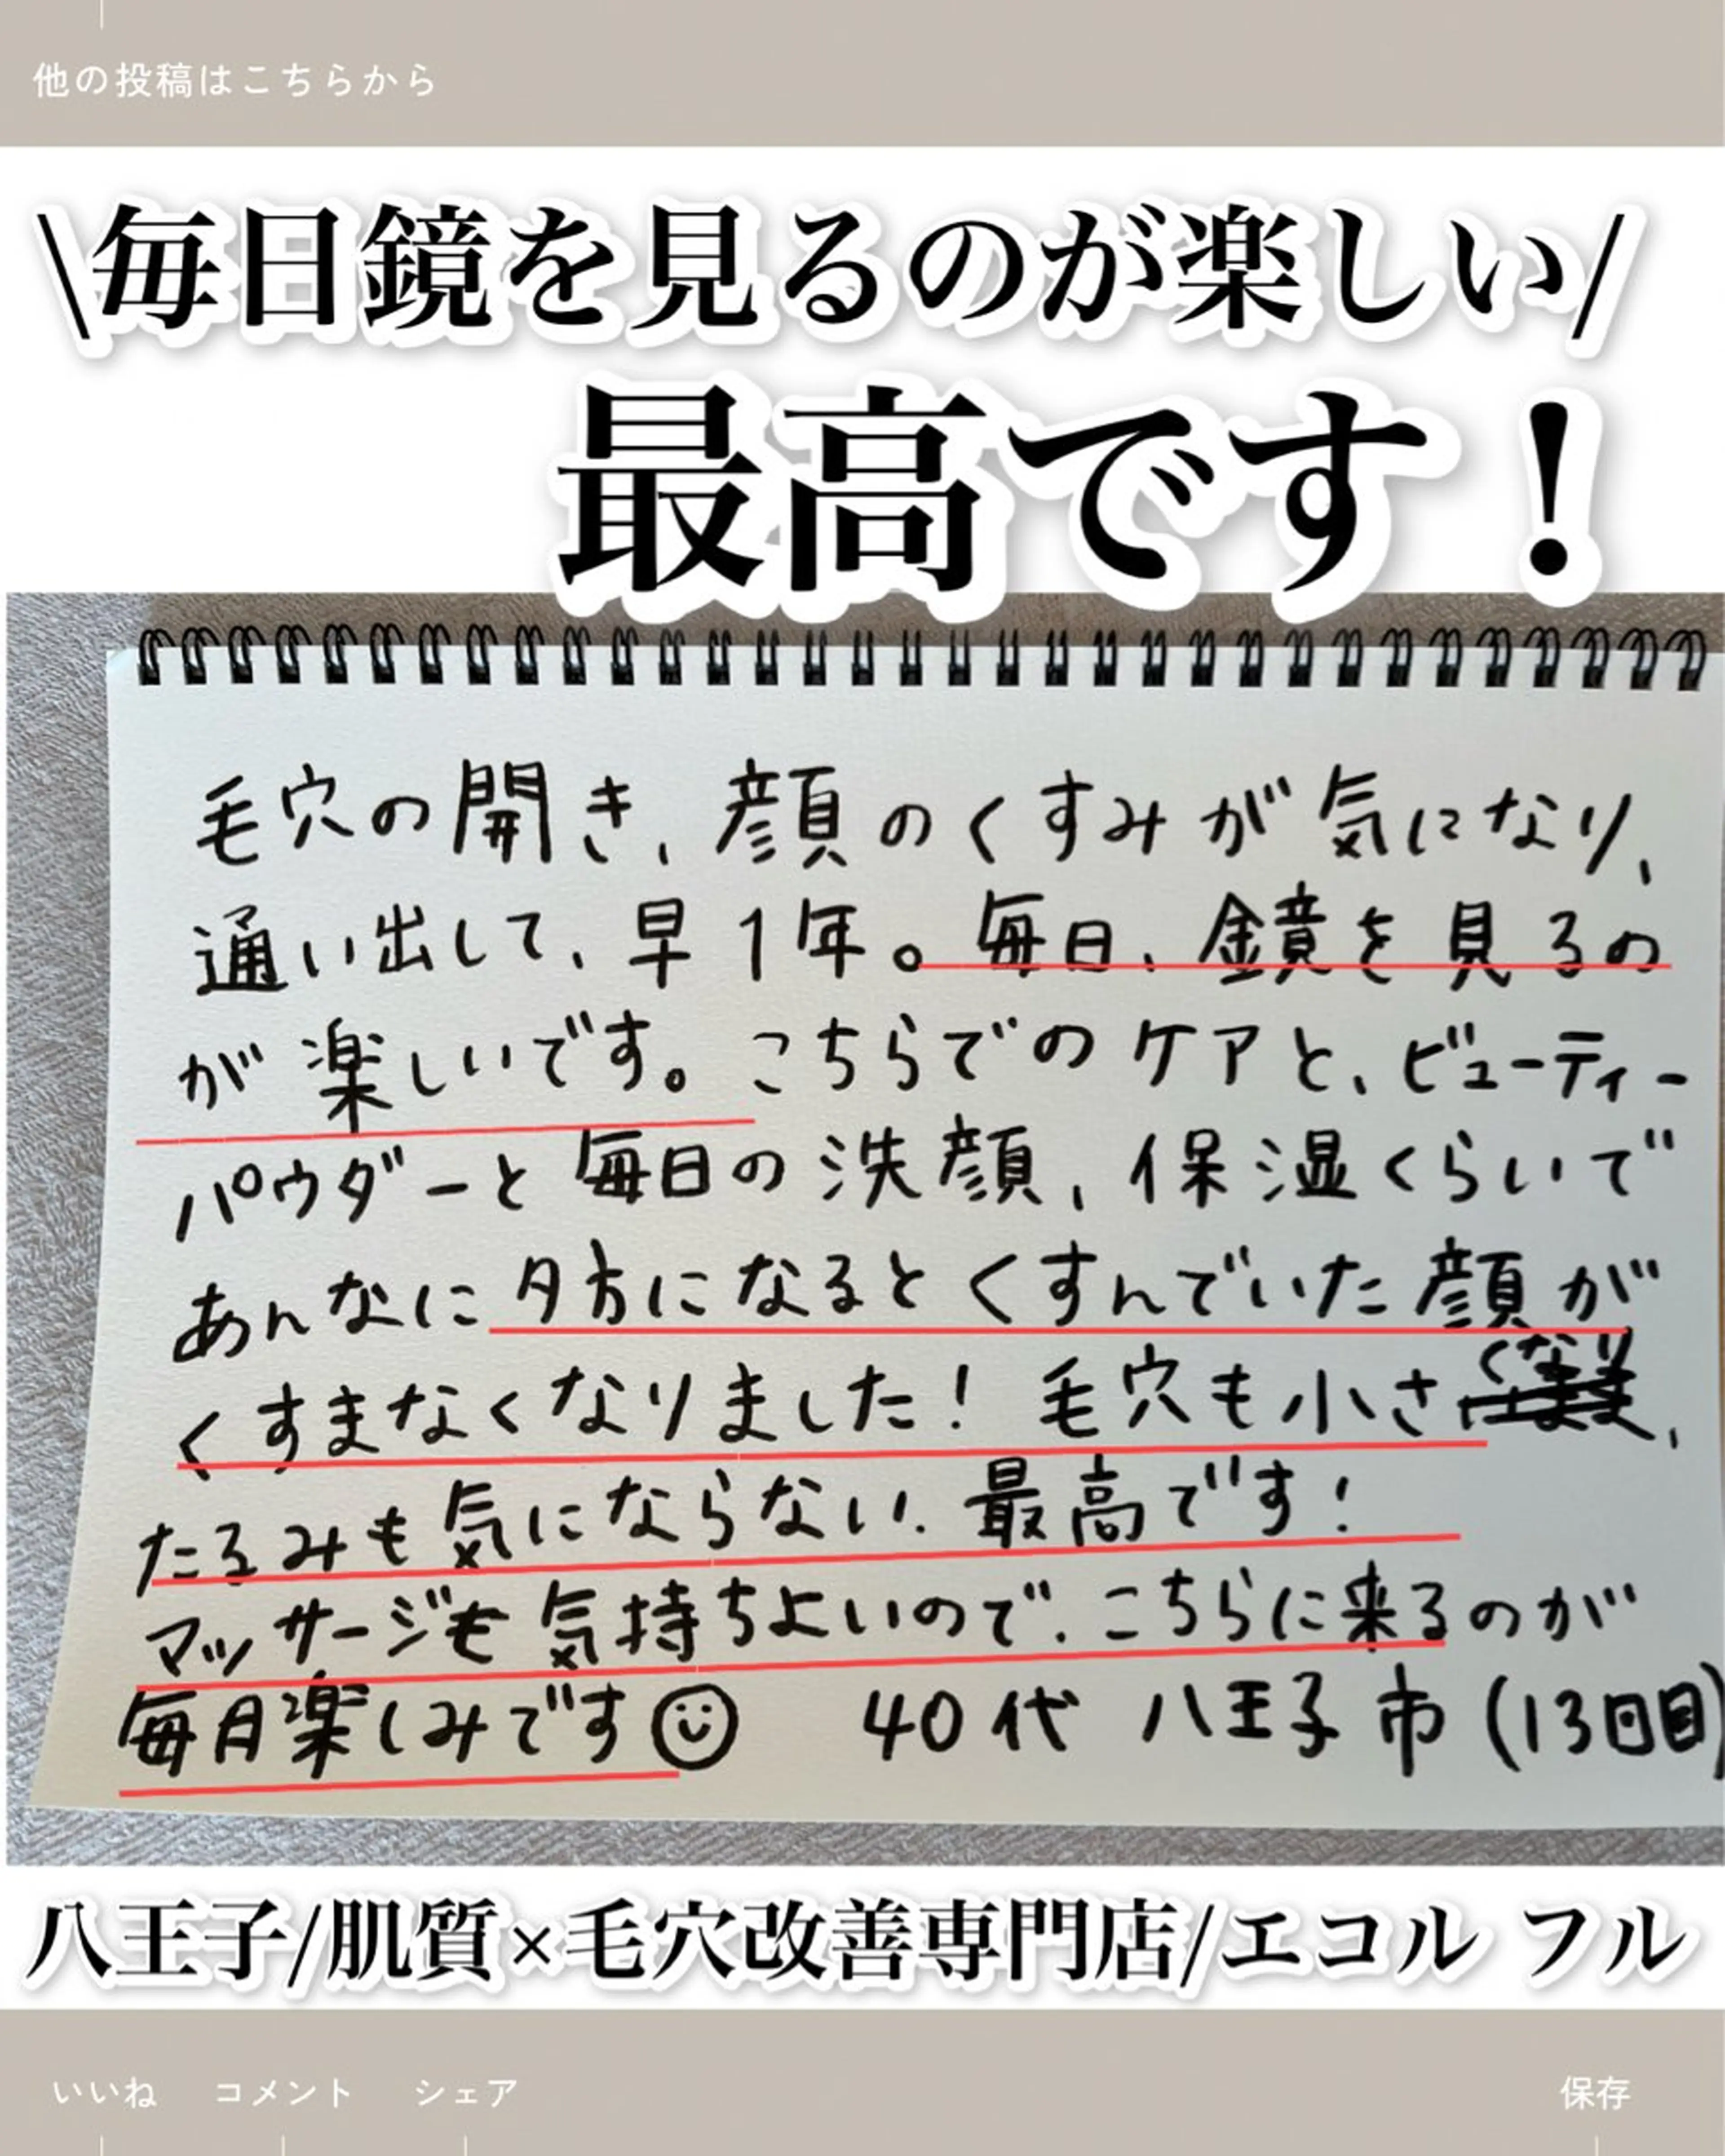 他の投稿はこちらから
\毎日鏡を見るのが楽しい/
最高です！
毛穴の開き、顔のくすみが気になり、
通い出して、早1年。毎日、鏡を見るの
が楽しいです。こちらでのケアと、ビューティー
パウダーと毎日の洗顔、保湿くらいで
あんなに夕方になるとくすんでいた顔が
くすまなくなりました！毛穴も小さくなり、
たるみも気にならない、最高です！
マッサージも気持ちよいので、こちらに来るのが
毎月楽しみです 40代 八王子市(13回目)
八王子/肌質×毛穴改善専門店/エコル フル
いいね コメント シェア 保存